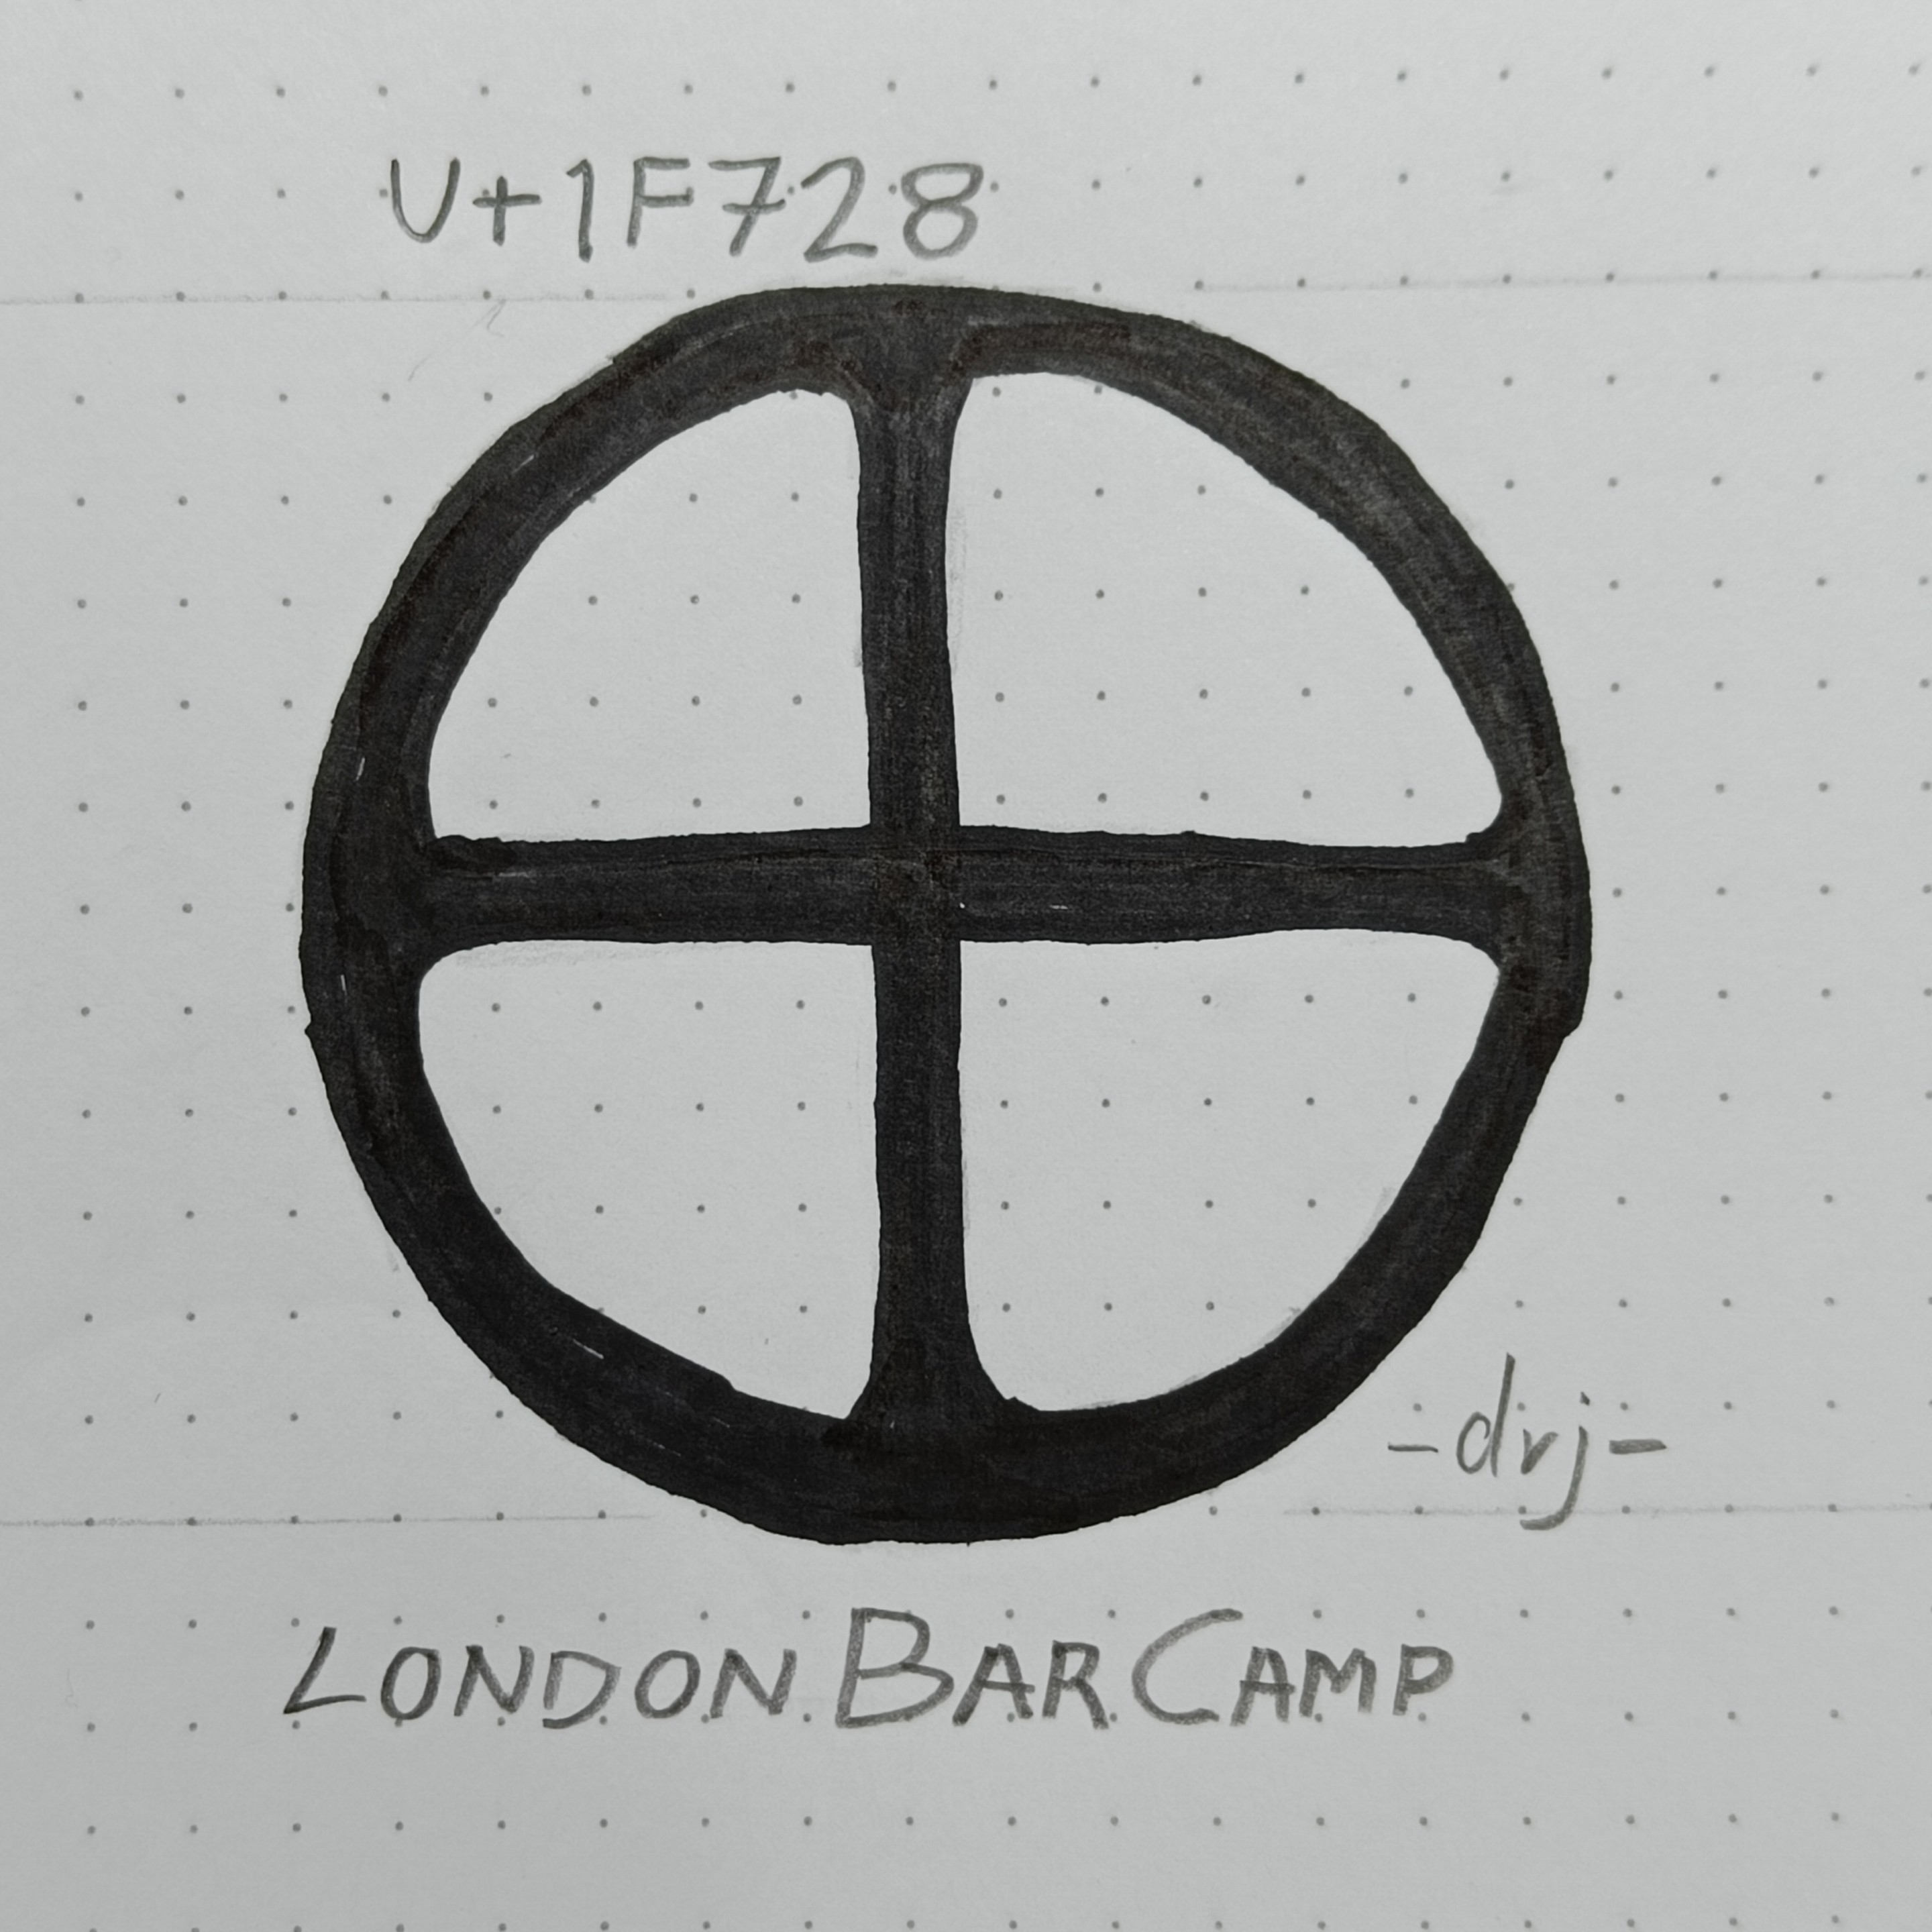 U+1F728
-drj-
LONDON BAR CAMP